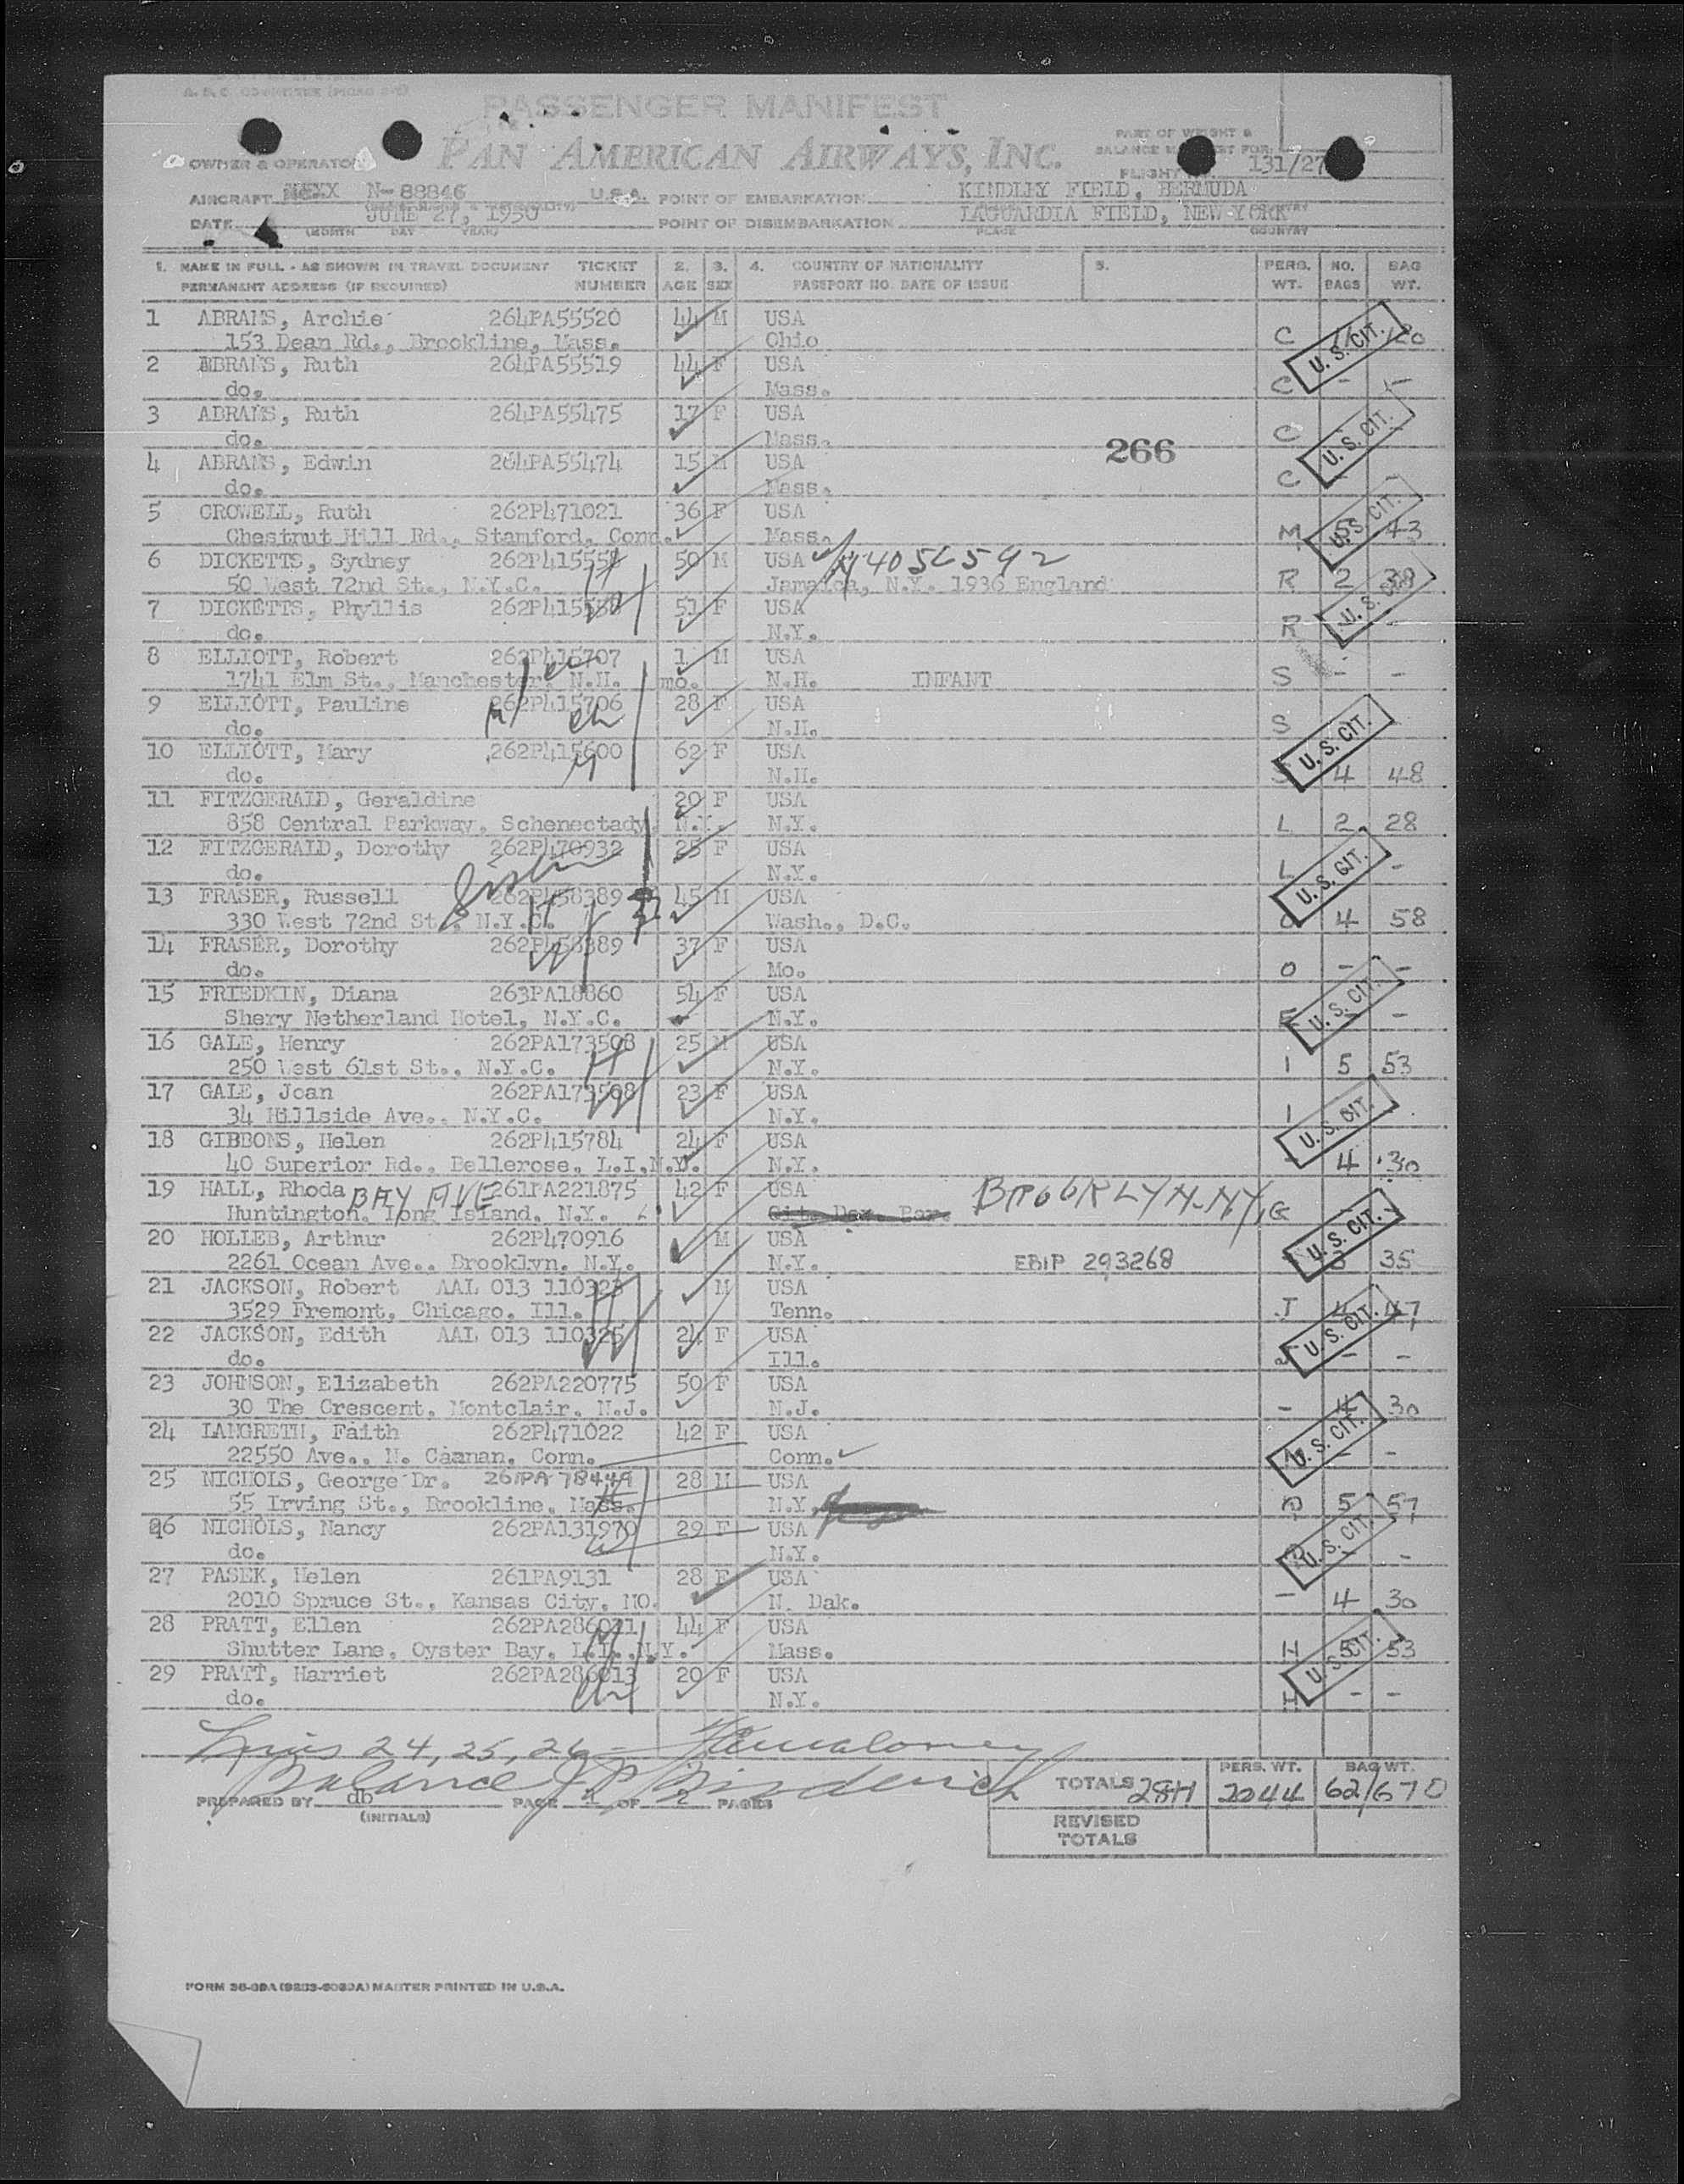 PASSENGER MANIFEST
PAN AMERICAN AIRWAYS, INC.
OWNER & OPERATOR
PART OF WEIGHT &
BALANCE MANIFEST FOR:
FLIGHT NO. 131/27
AIRCRAFT N-88846 U.S.A. POINT OF EMBARKATION KINDLEY FIELD, BERMUDA
DATE JUNE 27, 1950 POINT OF DISEMBARKATION LAGUARDIA FIELD, NEW YORK
(MONTH DAY YEAR) PLACE COUNTRY
1. NAME IN FULL - AS SHOWN IN TRAVEL DOCUMENT TICKET 2. 3. 4. COUNTRY OF NATIONALITY 5. PERS. NO. BAG
PERMANENT ADDRESS (IF REQUIRED) NUMBER AGE SEX PASSPORT NO. DATE OF ISSUE WT. BAGS WT.
1 ABRAMS, Archie 264PA55520 44 M USA
153 Dean Rd., Brookline, Mass. Ohio C U. S. CIT.
2 ABRAMS, Ruth 264PA55519 44 F USA
do. Mass. C - -
3 ABRAMS, Ruth 264PA55475 17 F USA
do. Mass. C U. S. CIT.
266
4 ABRAMS, Edwin 264PA55474 15 M USA
do. Mass. C - -
5 CROWELL, Ruth 262P471021 36 F USA
Chestnut Hill Rd., Stamford, Conn. Mass. M U. S. CIT. 43
6 DICKETTS, Sydney 262P415558 50 M USA
50 West 72nd St., N.Y.C. Jamaica, N.Y. 1936 England R 2 38
7 DICKETTS, Phyllis 262P415558 51 F USA
do. N.Y. R U. S. CIT. -
8 ELLIOTT, Robert 262P415707 1 M USA
1741 Elm St., Manchester, N.H. mo. N.H. INFANT S - -
9 ELLIOTT, Pauline 262P415706 28 F USA
do. N.H. S
10 ELLIOTT, Mary 262P415600 62 F USA U. S. CIT.
do. N.H. S 4 48
11 FITZGERALD, Geraldine 20 F USA
858 Central Parkway, Schenectady, N.Y. N.Y. L 2 28
12 FITZGERALD, Dorothy 262P470932 25 F USA
do. N.Y. L U. S. CIT. -
13 FRASER, Russell 262P458389 45 M USA
330 West 72nd St., N.Y.C. Wash., D.C. O 4 58
14 FRASER, Dorothy 262P458389 37 F USA
do. Mo. O - -
15 FRIEDKIN, Diana 263PA18860 54 F USA
Shery Netherland Hotel, N.Y.C. N.Y. E U. S. CIT. -
16 GALE, Henry 262PA173508 25 M USA
250 West 61st St., N.Y.C. N.Y. I 5 53
17 GALE, Joan 262PA173508 23 F USA
34 Hillside Ave., N.Y.C. N.Y. I U. S. CIT.
18 GIBBONS, Helen 262P415784 24 F USA
40 Superior Rd., Bellerose, L.I.N.Y. N.Y. - 4 30
19 HALL, Rhoda BAY AVE 261PA221875 42 F USA BROOKLYN-NY
Huntington, Long Island, N.Y. G
20 HOLLEB, Arthur 262P470916 M USA U. S. CIT.
2261 Ocean Ave., Brooklyn, N.Y. N.Y. EBIP 293268 3 35
21 JACKSON, Robert AAL 013 110323 M USA
3529 Fremont, Chicago, Ill. Tenn. J 4 47
22 JACKSON, Edith AAL 013 110325 24 F USA U. S. CIT.
do. Ill. J - -
23 JOHNSON, Elizabeth 262PA220775 50 F USA
30 The Crescent, Montclair, N.J. N.J. - 4 30
24 LANGRETH, Faith 262P471022 42 F USA
22550 Ave., N. Caanan, Conn. Conn. U. S. CIT. -
25 NICHOLS, George Dr. 261PA78449 28 M USA
55 Irving St., Brookline, Mass. N.Y. 5 57
26 NICHOLS, Nancy 262PA131970 29 F USA
do. N.Y. U. S. CIT. -
27 PASEK, Helen 261PA9131 28 F USA
2010 Spruce St., Kansas City, MO. N. Dak. - 4 30
28 PRATT, Ellen 262PA286011 44 F USA
Shutter Lane, Oyster Bay, L.I. N.Y. Mass. H 5 53
29 PRATT, Harriet 262PA286013 20 F USA U. S. CIT.
do. N.Y. H - -
24, 25, 26
Balance
TOTALS 28H PERS. WT. 2044 BAG WT. 62/670
PREPARED BY db PAGE 1 OF 2 PAGES
(INITIALS)
REVISED
TOTALS
MASTER PRINTED IN U.S.A.